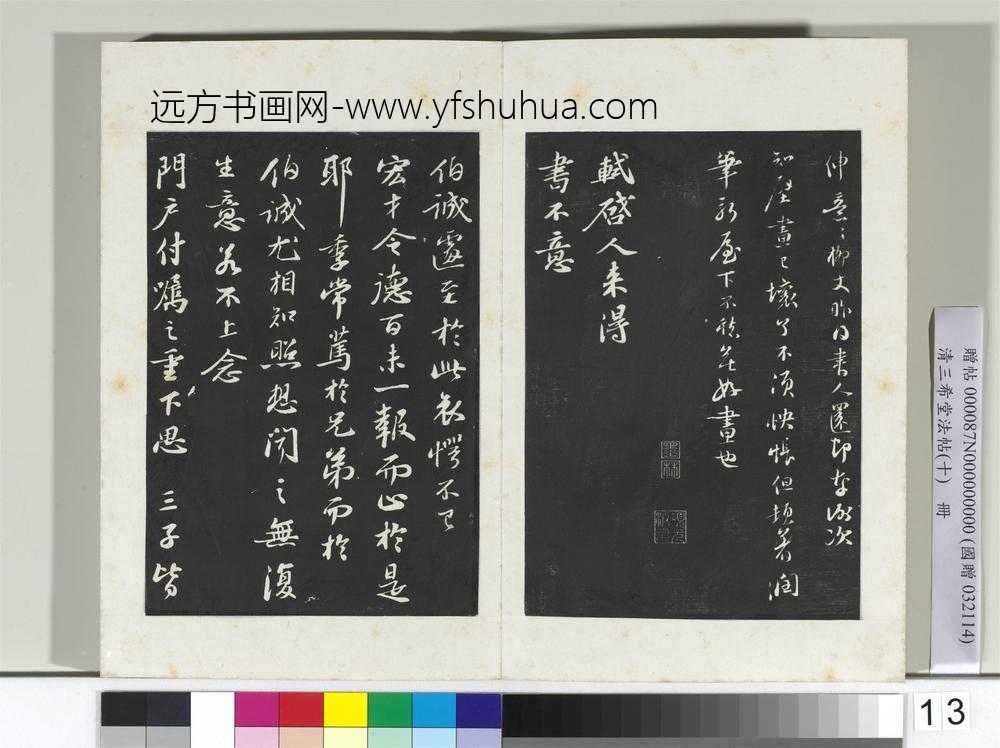 远方书画网-www.yfshuhua.com
伸意〻柳丈昨得書人還即奉謝次
知壁畫已壞了不須怏悵但頓著潤
筆新屋下不愁無好畫也
墨林
軾啓人来得
書不意
伯誠遽至於此哀愕不已
宏才令德百未一報而止於是
耶 季常篤於兄弟而於
伯誠尤相知照想聞之無復
生意若不上念
門户付囑之重下思 三子皆
贈帖 000087N000000000 (國贈 032114)
清三希堂法帖(十) 冊
13